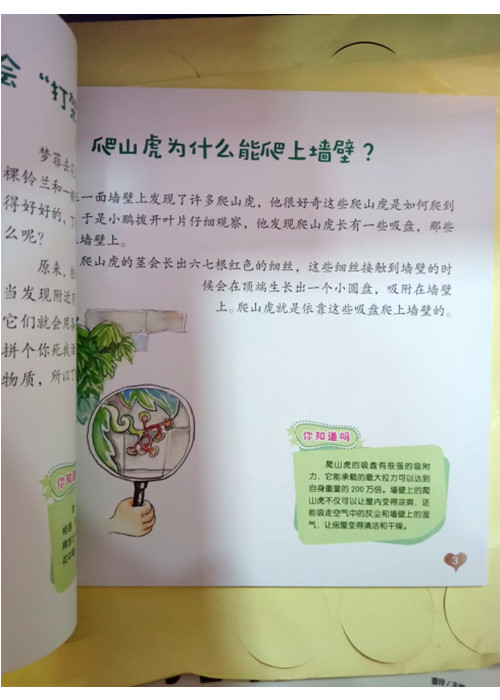 会 “打
梦菲去
棵铃兰和一
得好好的，
么呢？
原来，
当发现附近有
它们就会用
拼个你死我
物质，所以
你知道
爬山虎为什么能爬上墙壁？
一面墙壁上发现了许多爬山虎，他很好奇这些爬山虎是如何爬到
于是小鹏拨开叶片仔细观察，他发现爬山虎长有一些吸盘，那些
墙壁上。
爬山虎的茎会长出六七根红色的细丝，这些细丝接触到墙壁的时
候会在顶端生长出一个小圆盘，吸附在墙壁
上。爬山虎就是依靠这些吸盘爬上墙壁的。
你知道吗
爬山虎的吸盘有很强的吸附
力，它能承载的最大拉力可以达到
自身重量的200万倍。墙壁上的爬
山虎不仅可以让屋内变得凉爽，还
能吸走空气中的灰尘和墙壁上的湿
气，让房屋变得清洁和干燥。
3